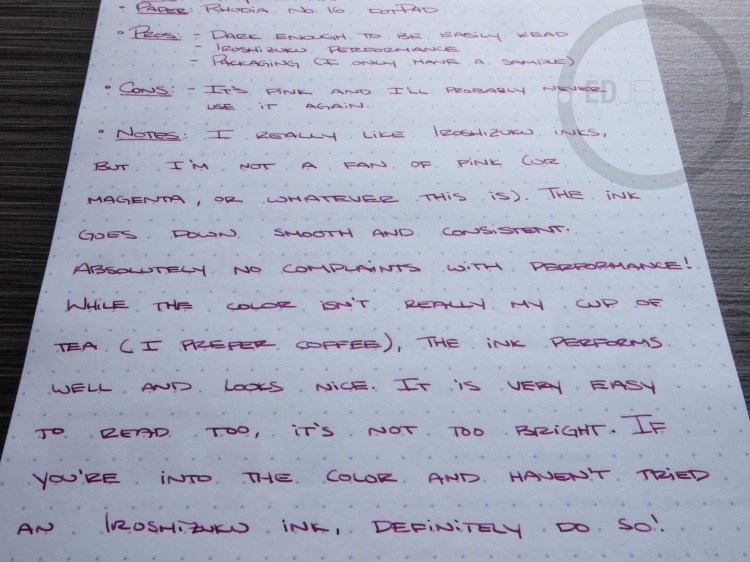 • Paper: Rhodia No. 16 DotPad
• Pros: - Dark enough to be easily read
- Iroshizuku performance
- Packaging (I only have a sample)
• Cons: - It's pink and I'll probably never
use it again.
• Notes: I really like Iroshizuku inks,
but I'm not a fan of pink (or
magenta, or whatever this is). The ink
goes down smooth and consistent.
Absolutely no complaints with performance!
While the color isn't really my cup of
tea (I prefer coffee), the ink performs
well and looks nice. It is very easy
to read too, it's not too bright. If
you're into the color and haven't tried
an Iroshizuku ink, definitely do so!